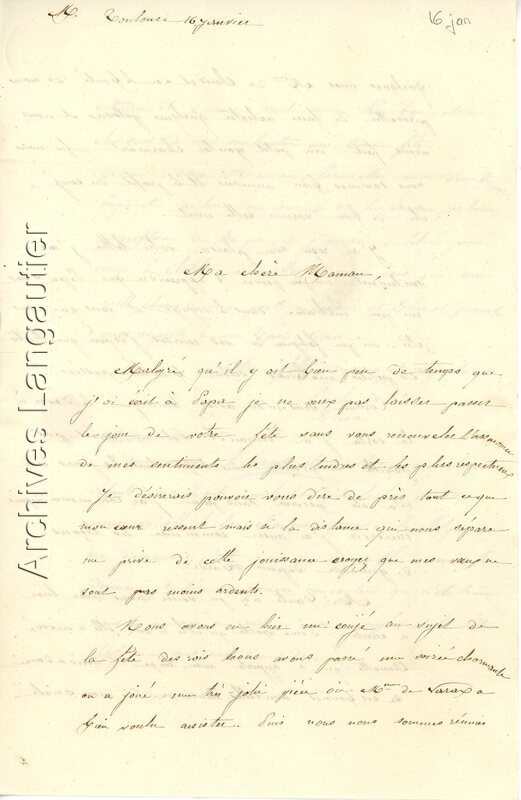 M. Toulouse 16 janvier
16 jan
Archives Langautier
Ma chère Maman,
Malgré qu'il y ait bien peu de temps que
j'ai écrit à Papa je ne veux pas laisser passer
le jour de votre fête sans vous renouveler l'assurance
de mes sentiments les plus tendres et les plus respectueux
Je désirerais pouvoir vous dire de près tout ce que
mon cœur ressent mais si la distance qui nous sépare
me prive de cette jouissance croyez que mes vœux ne
sont pas moins ardents.
Nous avons eu hier un congé au sujet de
la fête des rois nous avons passé une soirée charmante
on a joué une très jolie pièce où Mme de Varax a
bien voulu assister. Puis nous nous sommes réunies